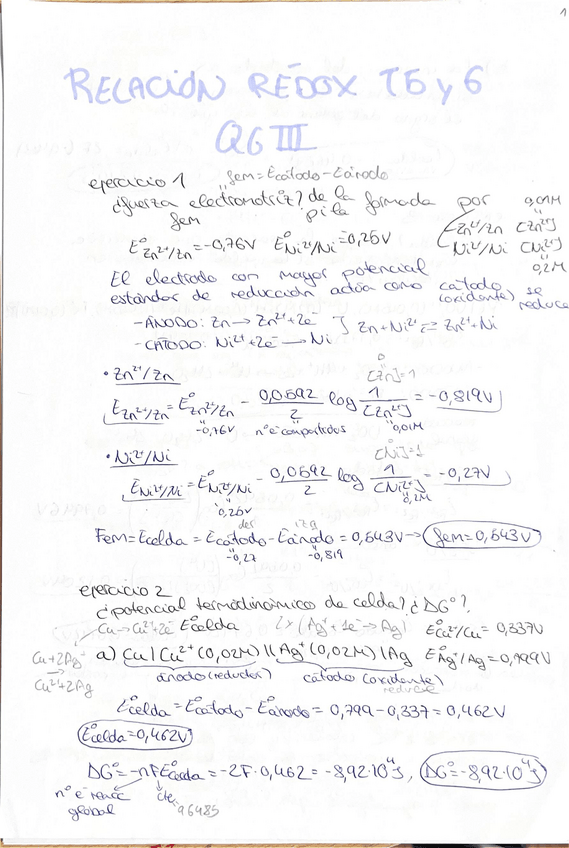 1
RELACIÓN REDOX T5 y 6
QG III
ejercicio 1 fem = Ecátodo - Eánodo
¿fuerza electromotriz? de la pila formada por
fem
Zn²⁺/Zn [Zn²⁺] = 0,01M
Ni²⁺/Ni [Ni²⁺] = 0,2M
E°Zn²⁺/Zn = -0,76V E°Ni²⁺/Ni = -0,25V
El electrodo con mayor potencial
estándar de reducción actúa como cátodo (oxidante) se reduce
- ÁNODO: Zn → Zn²⁺ + 2e⁻
- CÁTODO: Ni²⁺ + 2e⁻ → Ni
Zn + Ni²⁺ ⇌ Zn²⁺ + Ni
• Zn²⁺/Zn [Zn] = 1
E Zn²⁺/Zn = E° Zn²⁺/Zn - 0,0592/2 log 1/[Zn²⁺] = -0,819V
-0,76V nº e⁻ compartidos 0,01M
• Ni²⁺/Ni [Ni] = 1
E Ni²⁺/Ni = E° Ni²⁺/Ni - 0,0592/2 log 1/[Ni²⁺] = -0,27V
-0,25V 0,2M
der izq
Fem = Ecelda = Ecátodo - Eánodo = 0,543V → fem = 0,543V
-0,27 -0,819
ejercicio 2
¿potencial termodinámico de celda? ¿ΔG°?
Cu → Cu²⁺ + 2e⁻ E°celda 2x(Ag⁺ + 1e⁻ → Ag) E°Cu²⁺/Cu = 0,337V
Cu + 2Ag⁺ → Cu²⁺ + 2Ag
a) Cu | Cu²⁺ (0,02M) || Ag⁺ (0,02M) | Ag E°Ag⁺/Ag = 0,799V
ánodo (reductor) cátodo (oxidante)
reduce
E°celda = E°cátodo - E°ánodo = 0,799 - 0,337 = 0,462V
E°celda = 0,462V
DG° = -nFE°celda = -2F · 0,462 = -8,92·10⁴J, DG° = -8,92·10⁴J
nº e⁻ reacc global cte = 96485